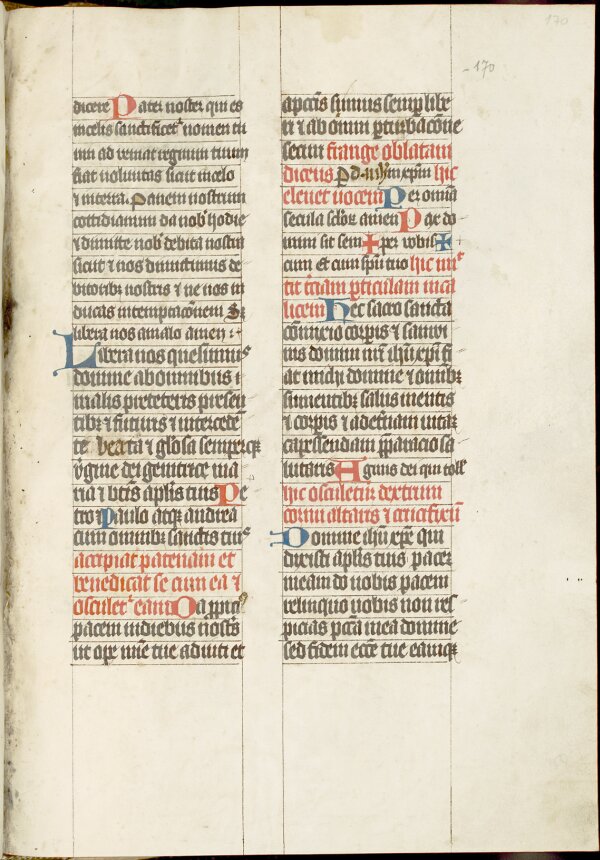 170
-170
dicere Pater noster qui es
incelis sanctificet' nomen tu
um ad veniat regnum tuum
fiat voluntas sicut incelo
⁊ interra. Panem nostrum
cottidianum da nob' hodie
⁊ dimitte nob' debita nostra
sicut ⁊ nos dimittimus de
bitorib; nostris ⁊ ne nos in
ducas intemptac̄onem S;
libera nos amalo amen :·
Libera nos quesumus
domine abomnibus
malis preteritis presen
tib; ⁊ futuris ⁊ intercede
te beata ⁊ gl̄osa semperq;
v̄gine dei genitrice ma
ria ⁊ btīs apl̄is tuis Pe
tro Paulo atq; andrea
cum omnib; sanctis tuis
accipiat patenam et
benedicat se cum ea ⁊
osculet' eam Da ꝓpiciꝰ
pacem indiebus nost̄s
ut ope mīe tue adiuti et
apcc̄is simus semꝑ libe
ri ⁊ ab om̄i ꝑturbac̄one
securi frangē oblatam
dicens P d. nr̄m xp̄m hic
elevet vocem Per omia
secula sclōꝝ amen Pax do
mini sit sem✝per vobis✝
cum Et cum sp̄u tuo hic mit
tit t̄ciam ꝑticulam inca
licem Hec sacro sancta
com̄ixcio corp̄is ⁊ sangui
nis domini nr̄i ih̄u xp̄i fi
at michi domine ⁊ omib;
sumentib; salus mentis
⁊ corp̄is ⁊ ad et̄nam vitā
capessendam p̄paracio sa
lutaris Agnus dei qui toll'
hic osculetur dextrum
cornu altaris ⁊ crucifixū
Domine ih̄u xp̄e qui
dixisti apl̄is tuis pacem
meam do vobis pacem
relinquo vobis non res
picias pcc̄a mea domine
sed fidem ecc̄e tue eamq;